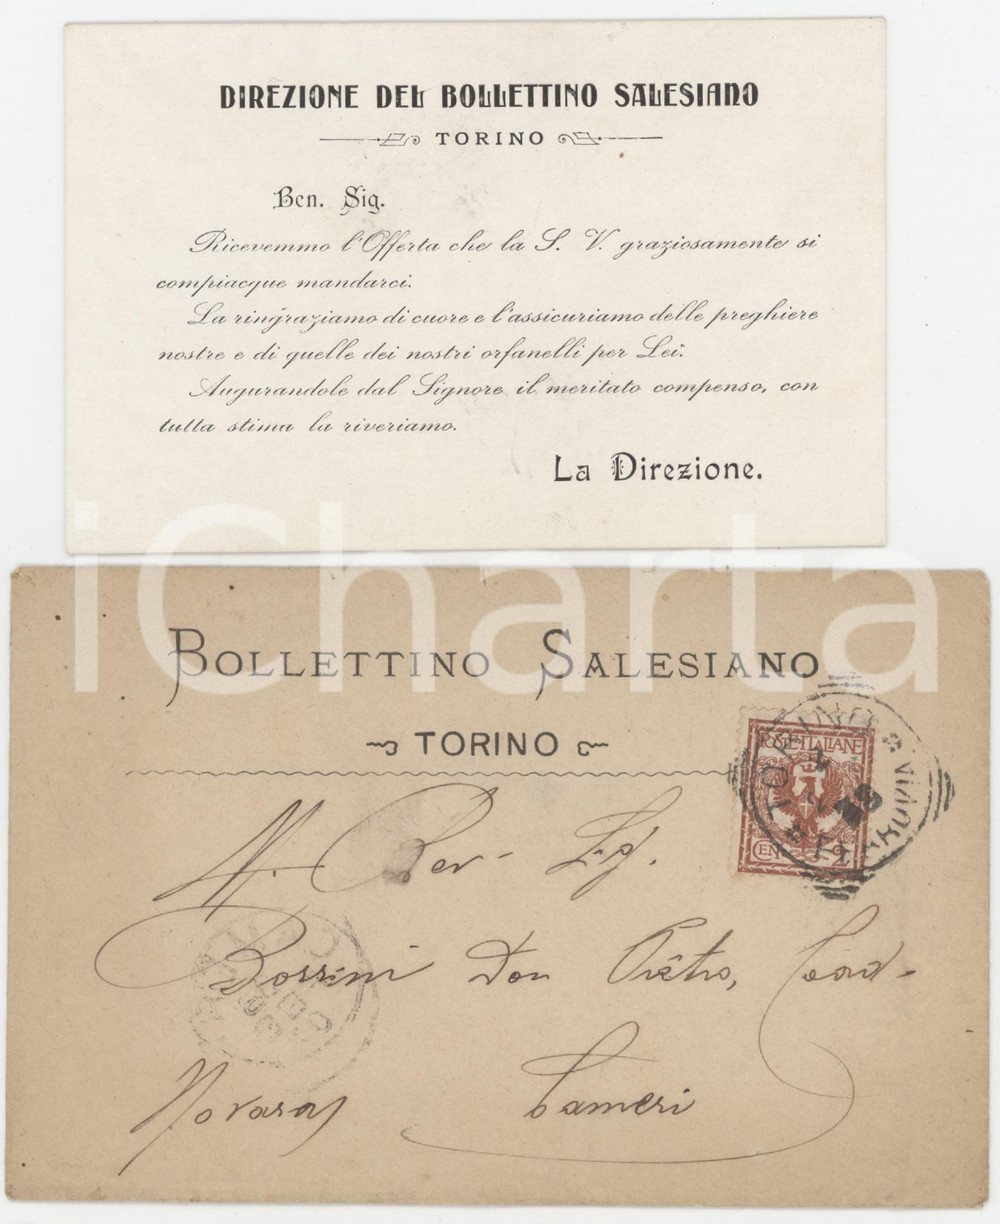 DIREZIONE DEL BOLLETTINO SALESIANO
TORINO
Ben. Sig.
Ricevemmo l'Offerta che la S. V. graziosamente si
compiacque mandarci.
La ringraziamo di cuore e l'assicuriamo delle preghiere
nostre e di quelle dei nostri orfanelli per Lei.
Augurandole dal Signore il meritato compenso, con
tutta stima la riveriamo.
La Direzione.
iCharta
BOLLETTINO SALESIANO
TORINO
POSTE ITALIANE
CEN 2
TORINO
FERROVIA
M. Rev. Sig.
Bossini Don Pietro, Coad.
Novara Cameri